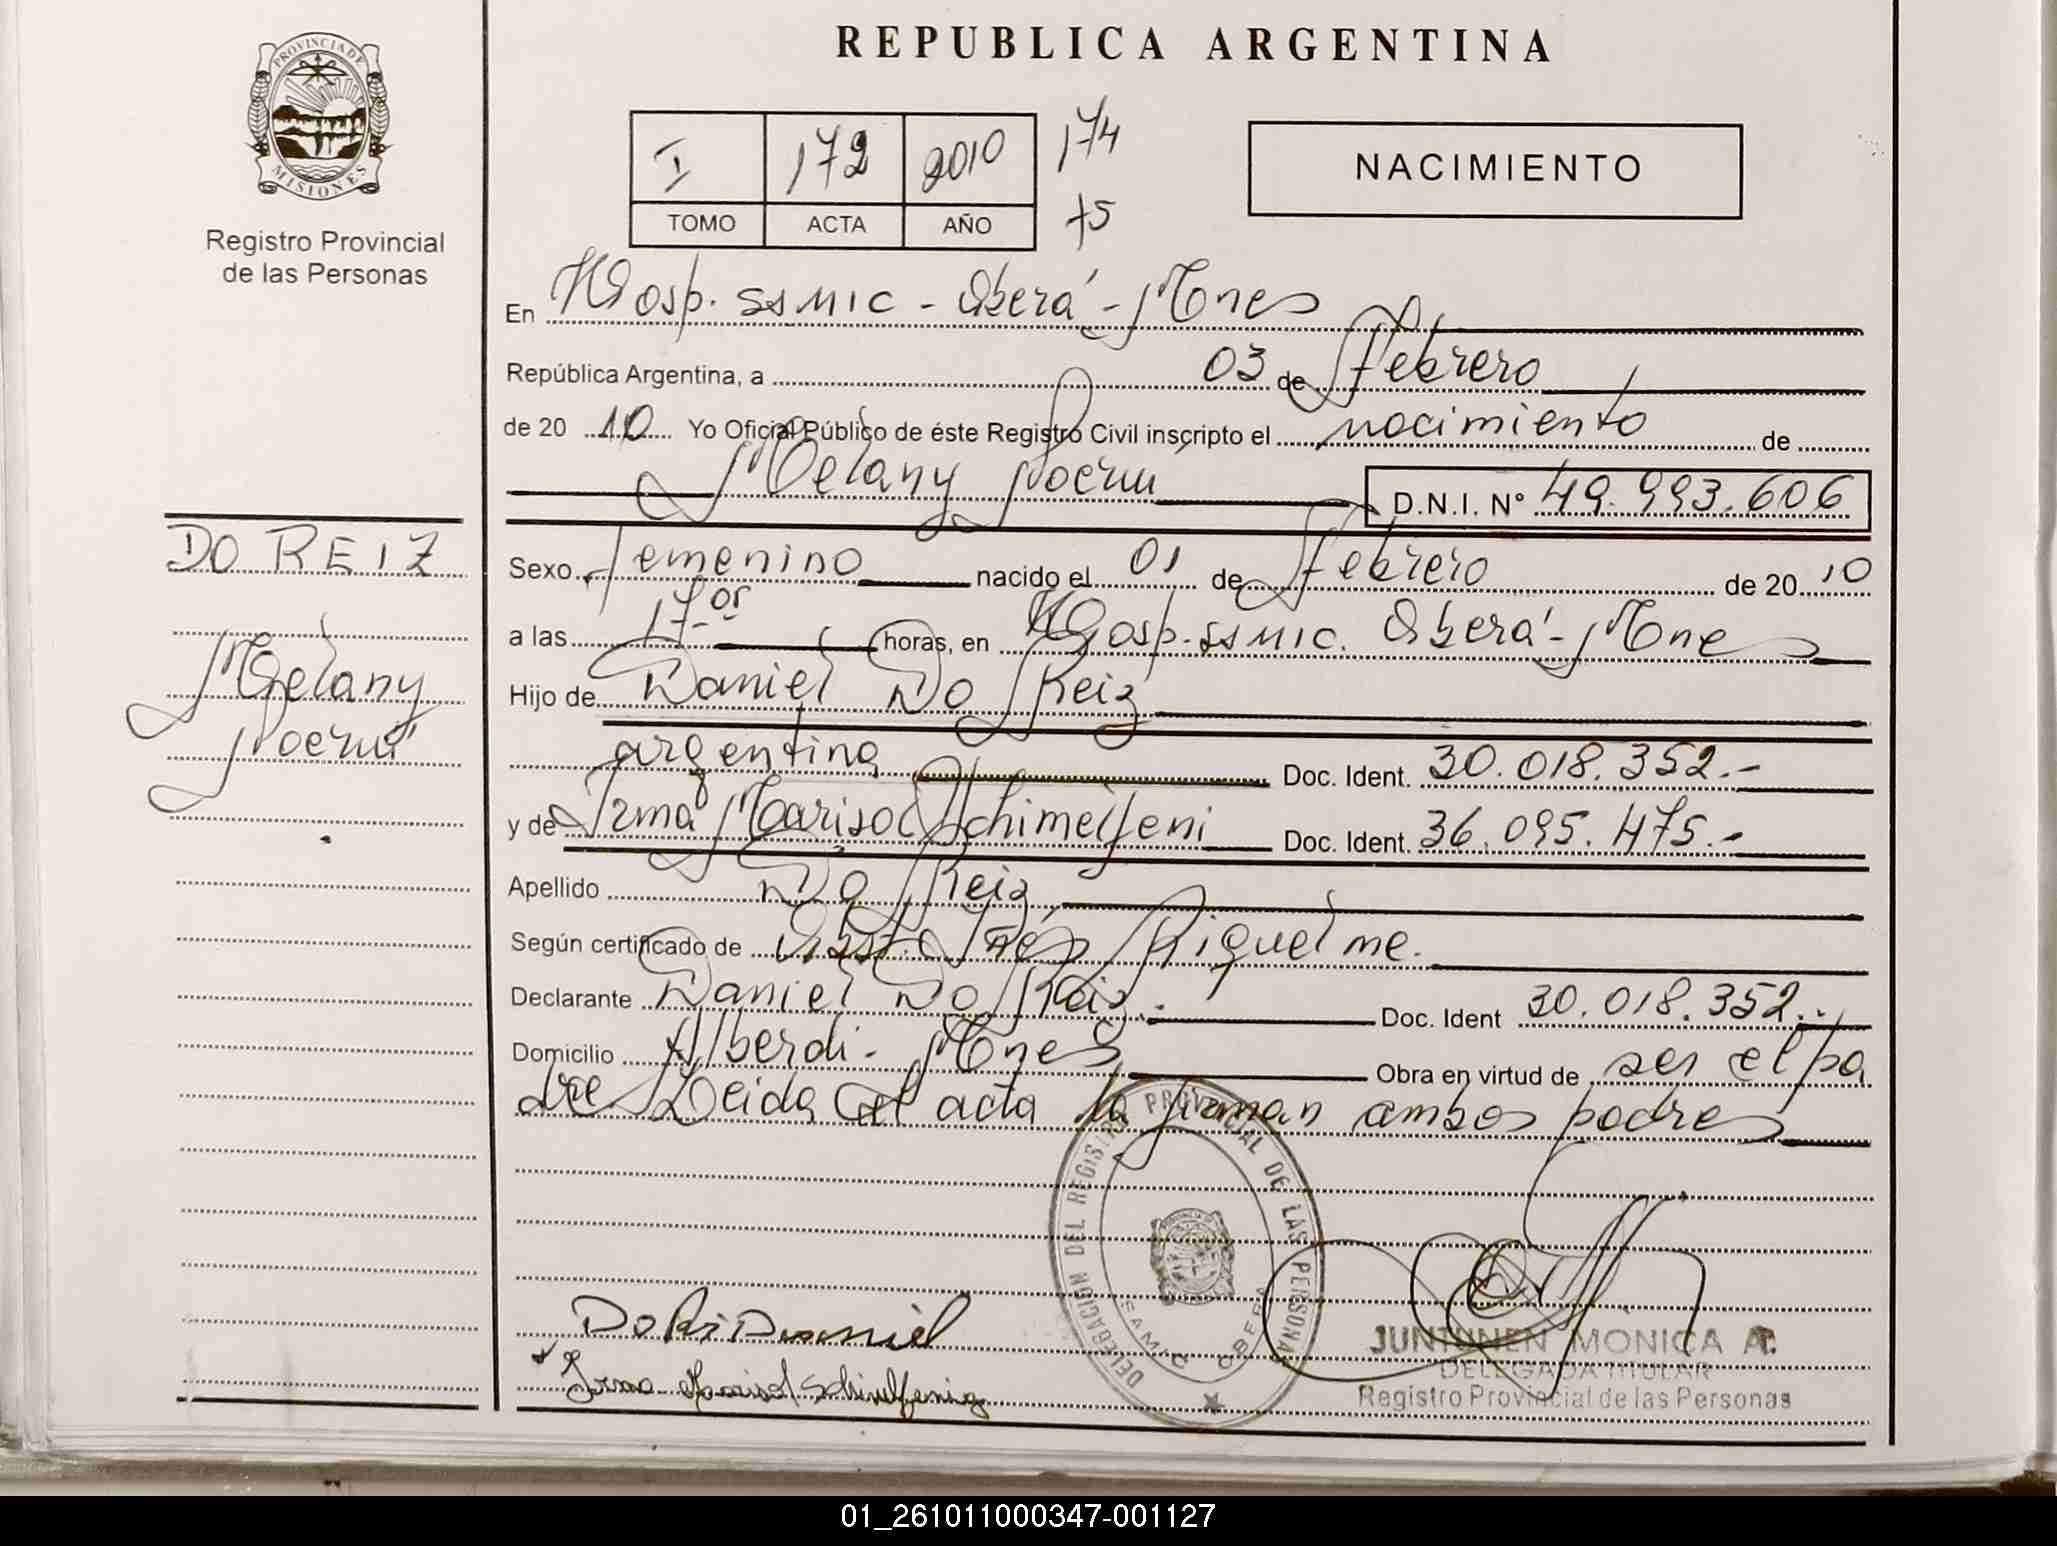 REPUBLICA ARGENTINA
PROVINCIA DE
MISIONES
Registro Provincial
de las Personas
I 172 2010 174
TOMO ACTA AÑO 75
NACIMIENTO
En Hosp. SSMIC - Oberá - Mnes
República Argentina, a 03 de Febrero
de 20 10 Yo Oficial Público de éste Registro Civil inscripto el nacimiento de
Melany Noemí D.N.I. Nº 49.993.606
DO REIZ
Melany
Noemí
Sexo femenino nacido el 01 de Febrero de 20 10
a las 17- horas, en Hosp. SSMIC. Oberá - Mnes
Hijo de Daniel Do Reiz
argentina Doc. Ident. 30.018.352.-
y de Irma Marisol Doc. Ident. 36.095.475.-
Apellido Do Reiz
Según certificado de Obst. Inés Riquelme.
Declarante Daniel Do Reiz. Doc. Ident 30.018.352..
Domicilio Alberdi - Mnes Obra en virtud de ser el pa
dre Leida el acta la firman ambos padres
DELEGACION DEL REGISTRO PROVINCIAL DE LAS PERSONAS
SAMIC OBERA
Irma Marisol
JUNTUNEN MONICA A.
DELEGADA TITULAR
Registro Provincial de las Personas
01_261011000347-001127